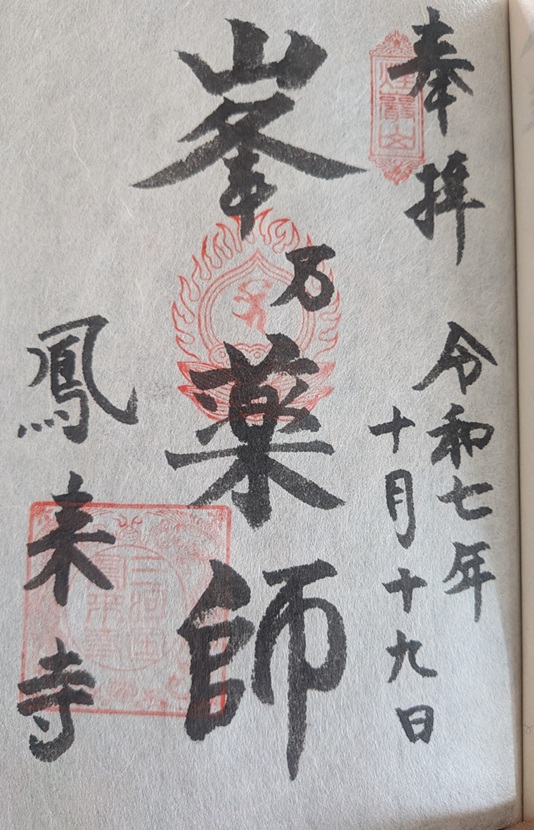 奉拝
令和七年
十月十九日
峯の薬師
鳳来寺